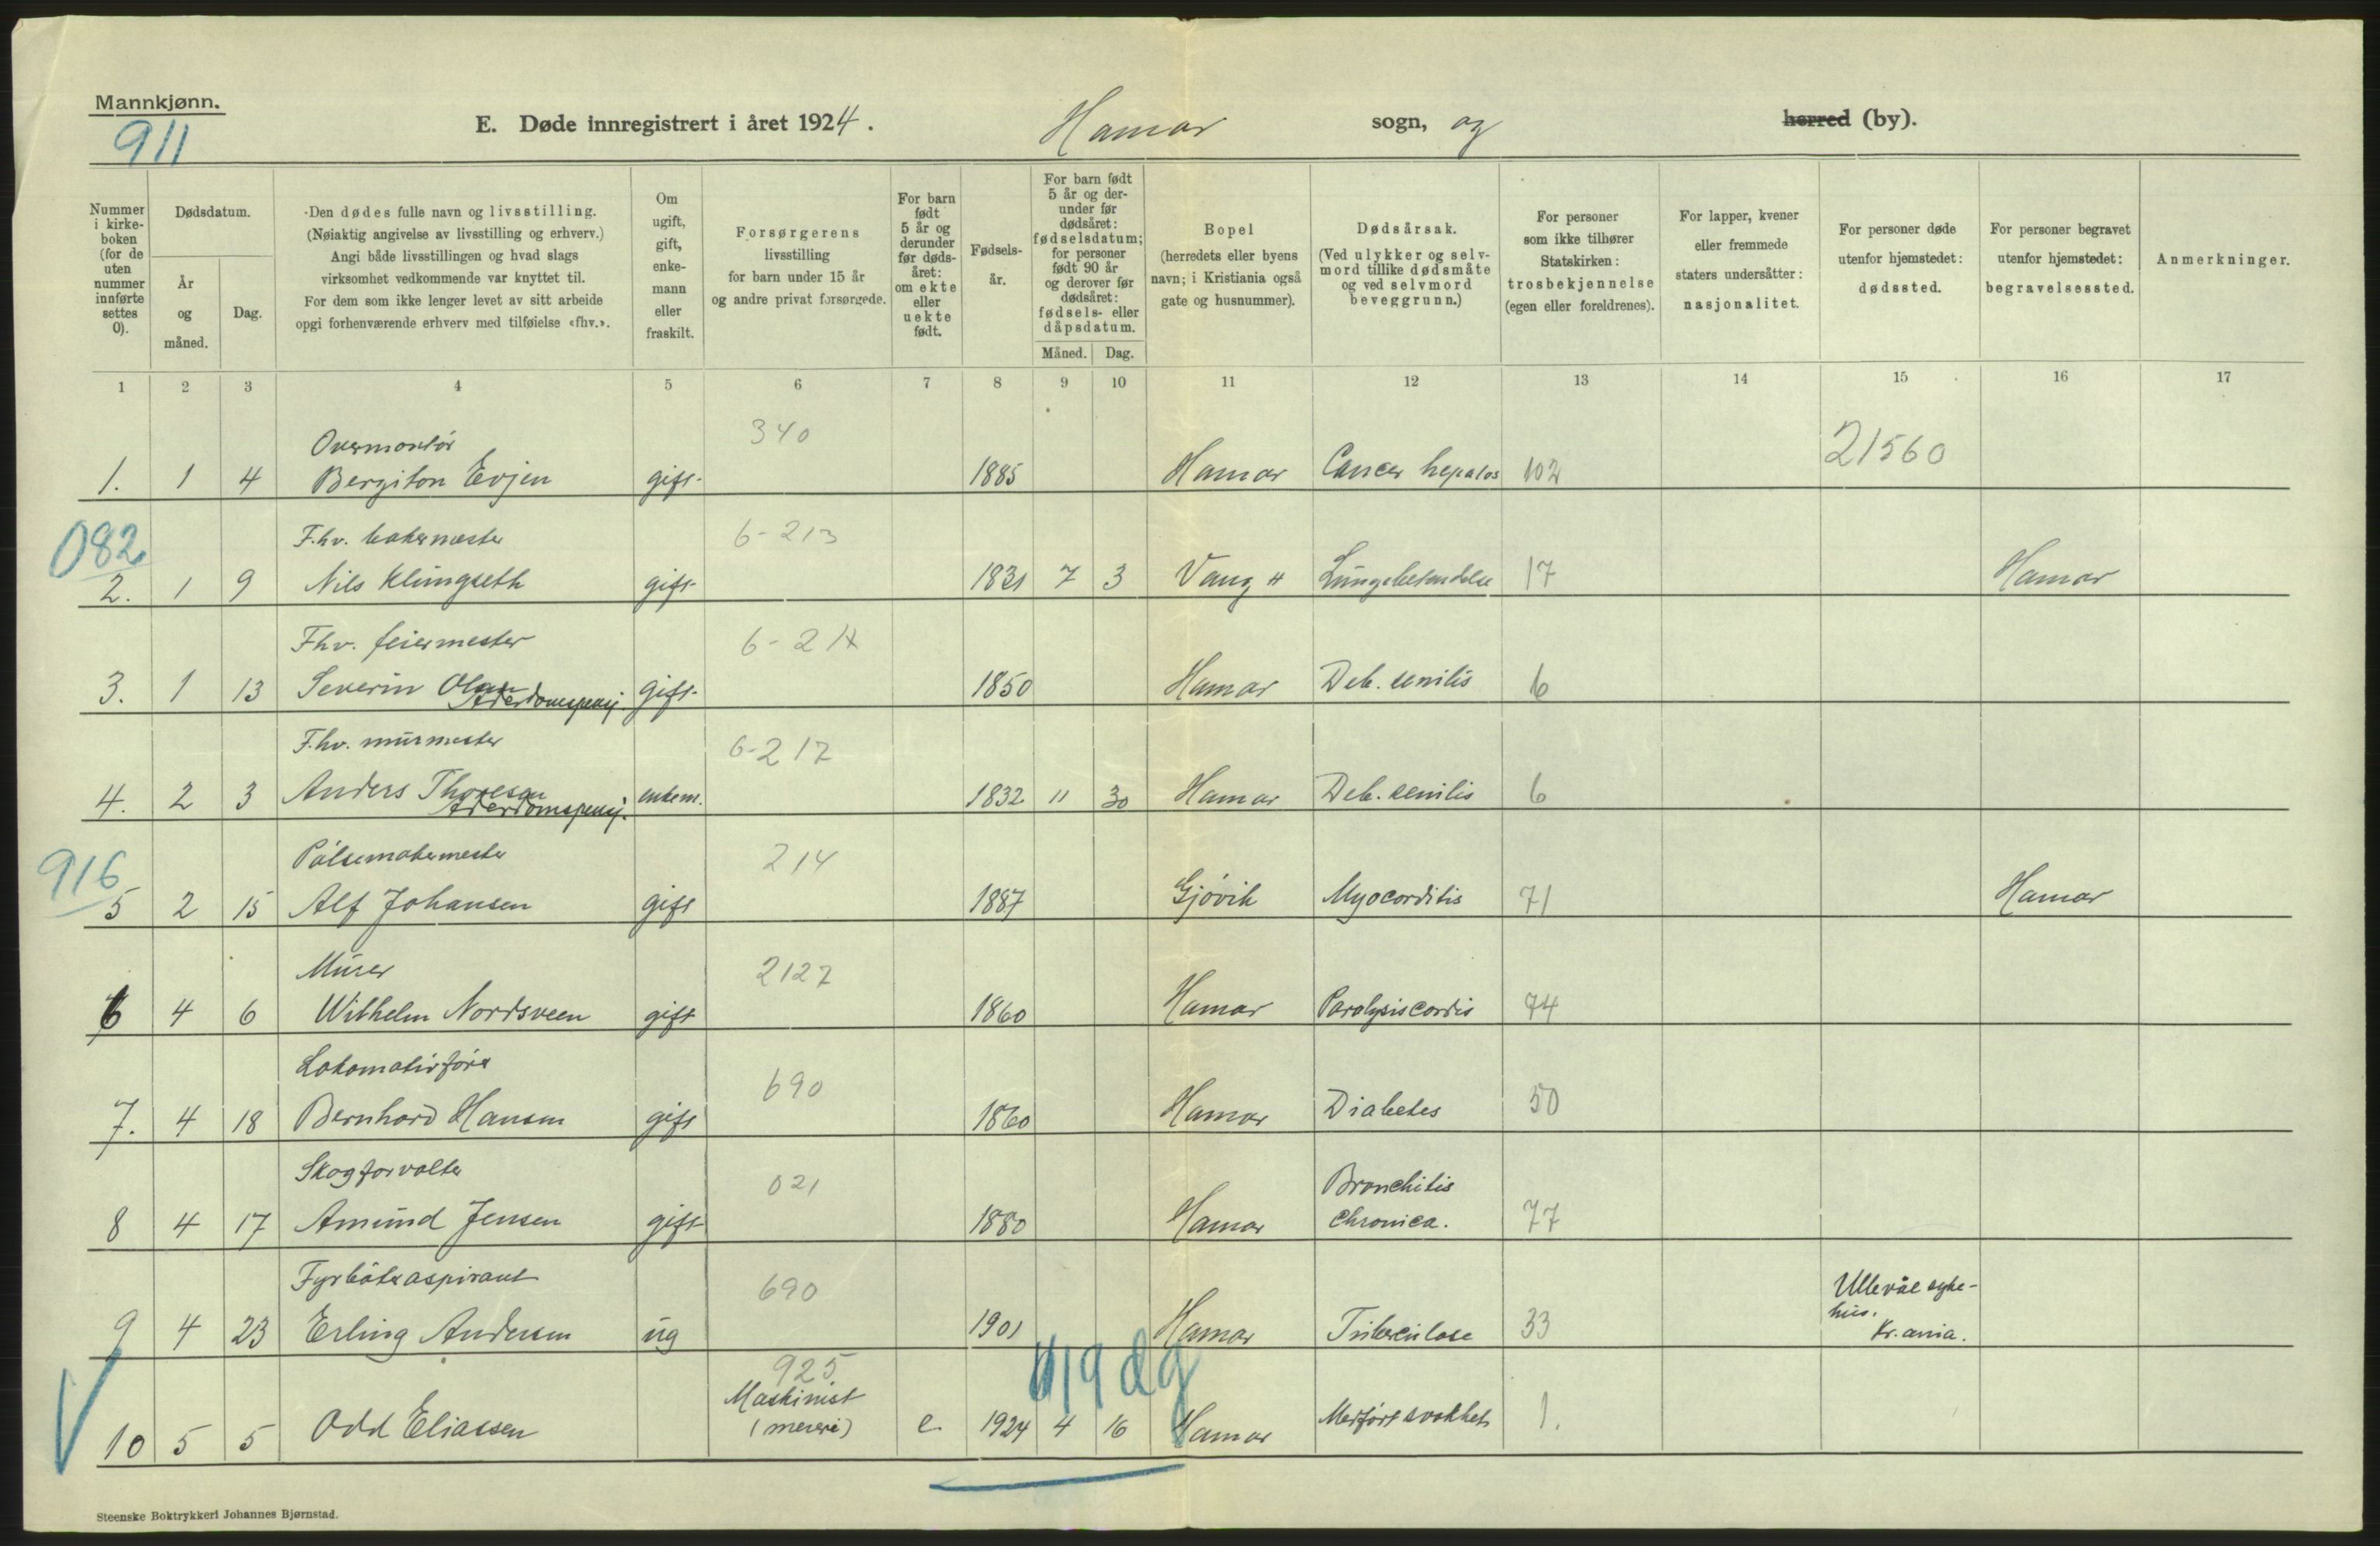 Mannkjønn.
911
E. Døde innregistrert i året 1924. Hamar sogn, og herred (by).
Nummer i kirke-boken (for de uten nummer innførte settes 0).
Dødsdatum.
År og måned.
Dag.
Den dødes fulle navn og livsstilling.
(Nøiaktig angivelse av livsstilling og erhverv.)
Angi både livsstillingen og hvad slags
virksomhet vedkommende var knyttet til.
For dem som ikke lenger levet av sitt arbeide
opgi forhenværende erhverv med tilføielse «fhv.».
Om ugift, gift, enke-mann eller fraskilt.
Forsørgerens
livsstilling
for barn under 15 år
og andre privat forsørgede.
For barn født 5 år og derunder før døds-året: om ekte eller uekte født.
Fødsels-år.
For barn født 5 år og der-under før dødsåret: fødselsdatum; for personer født 90 år og derover før dødsåret: fødsels- eller dåpsdatum.
Måned. Dag.
Bopel
(herredets eller byens
navn; i Kristiania også
gate og husnummer).
Dødsårsak.
(Ved ulykker og selv-
mord tillike dødsmåte
og ved selvmord
beveggrunn.)
For personer
som ikke tilhører
Statskirken:
trosbekjennelse
(egen eller foreldrenes).
For lapper, kvener
eller fremmede
staters undersåtter:
nasjonalitet.
For personer døde
utenfor hjemstedet:
dødssted.
For personer begravet
utenfor hjemstedet:
begravelsessted.
Anmerkninger.
1 2 3 4 5 6 7 8 9 10 11 12 13 14 15 16 17
Overmontør 340 21560
1. 1 4 Bergiton Evjen gift 1885 Hamar Cancer hepatos 102
082 F.hv. bakermester 6-213
2. 1 9 Nils Klüngseth gift 1831 7 3 Vang H Lüngebetendelse 17 Hamar
Fhv. feiermester 6-2
3. 1 13 Severin Olsen gift 1850 Hamar Deb. senilis 6
Alderdomspensj.
F.hv. mürmester 6-217
4. 2 3 Anders Thoresen enkem. 1832 11 30 Hamar Deb. senilis 6
Alderdomspensj.
916 Pölsemakermester 214
5 2 15 Alf Johansen gift 1887 Gjövik Myocorditis 71 Hamar
Mürer 2127
6 4 6 Wilhelm Nordsveen gift 1860 Hamar Paralysis cordis 74
Lokomotivförer 690
7. 4 18 Bernhard Hansen gift 1860 Hamar Diabetes 50
Skogforvalter 021 Bronchitis
8 4 17 Amünd Jensen gift 1880 Hamar Chronica. 77
Fyrböteraspirant 690 Ullevål syke-
hüs.
9 4 23 Erling Andersen üg 1901 Hamar Tüberkülose 33 Kr.ania.
925 19 dg
Maskinist
10 5 5 Odd Eliassen (meieri) e. 1924 4 16 Hamar Medfört svakhet 1.
Steenske Boktrykkeri Johannes Bjørnstad.